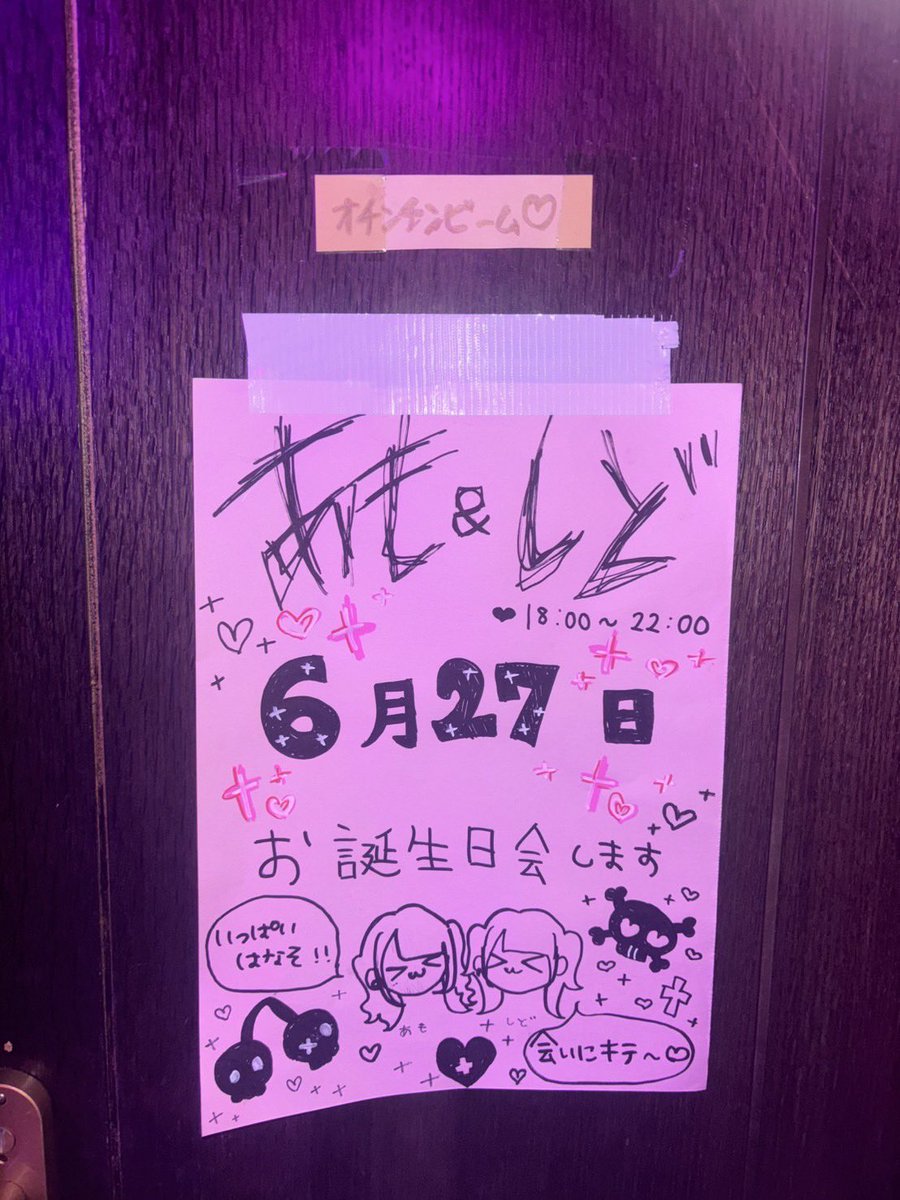 オチンチンビーム♡
あも & しど
♥18:00~22:00
6月27日
お誕生日会します
いっぱい
はなそ!!
あも
しど
会いにキテ~♡